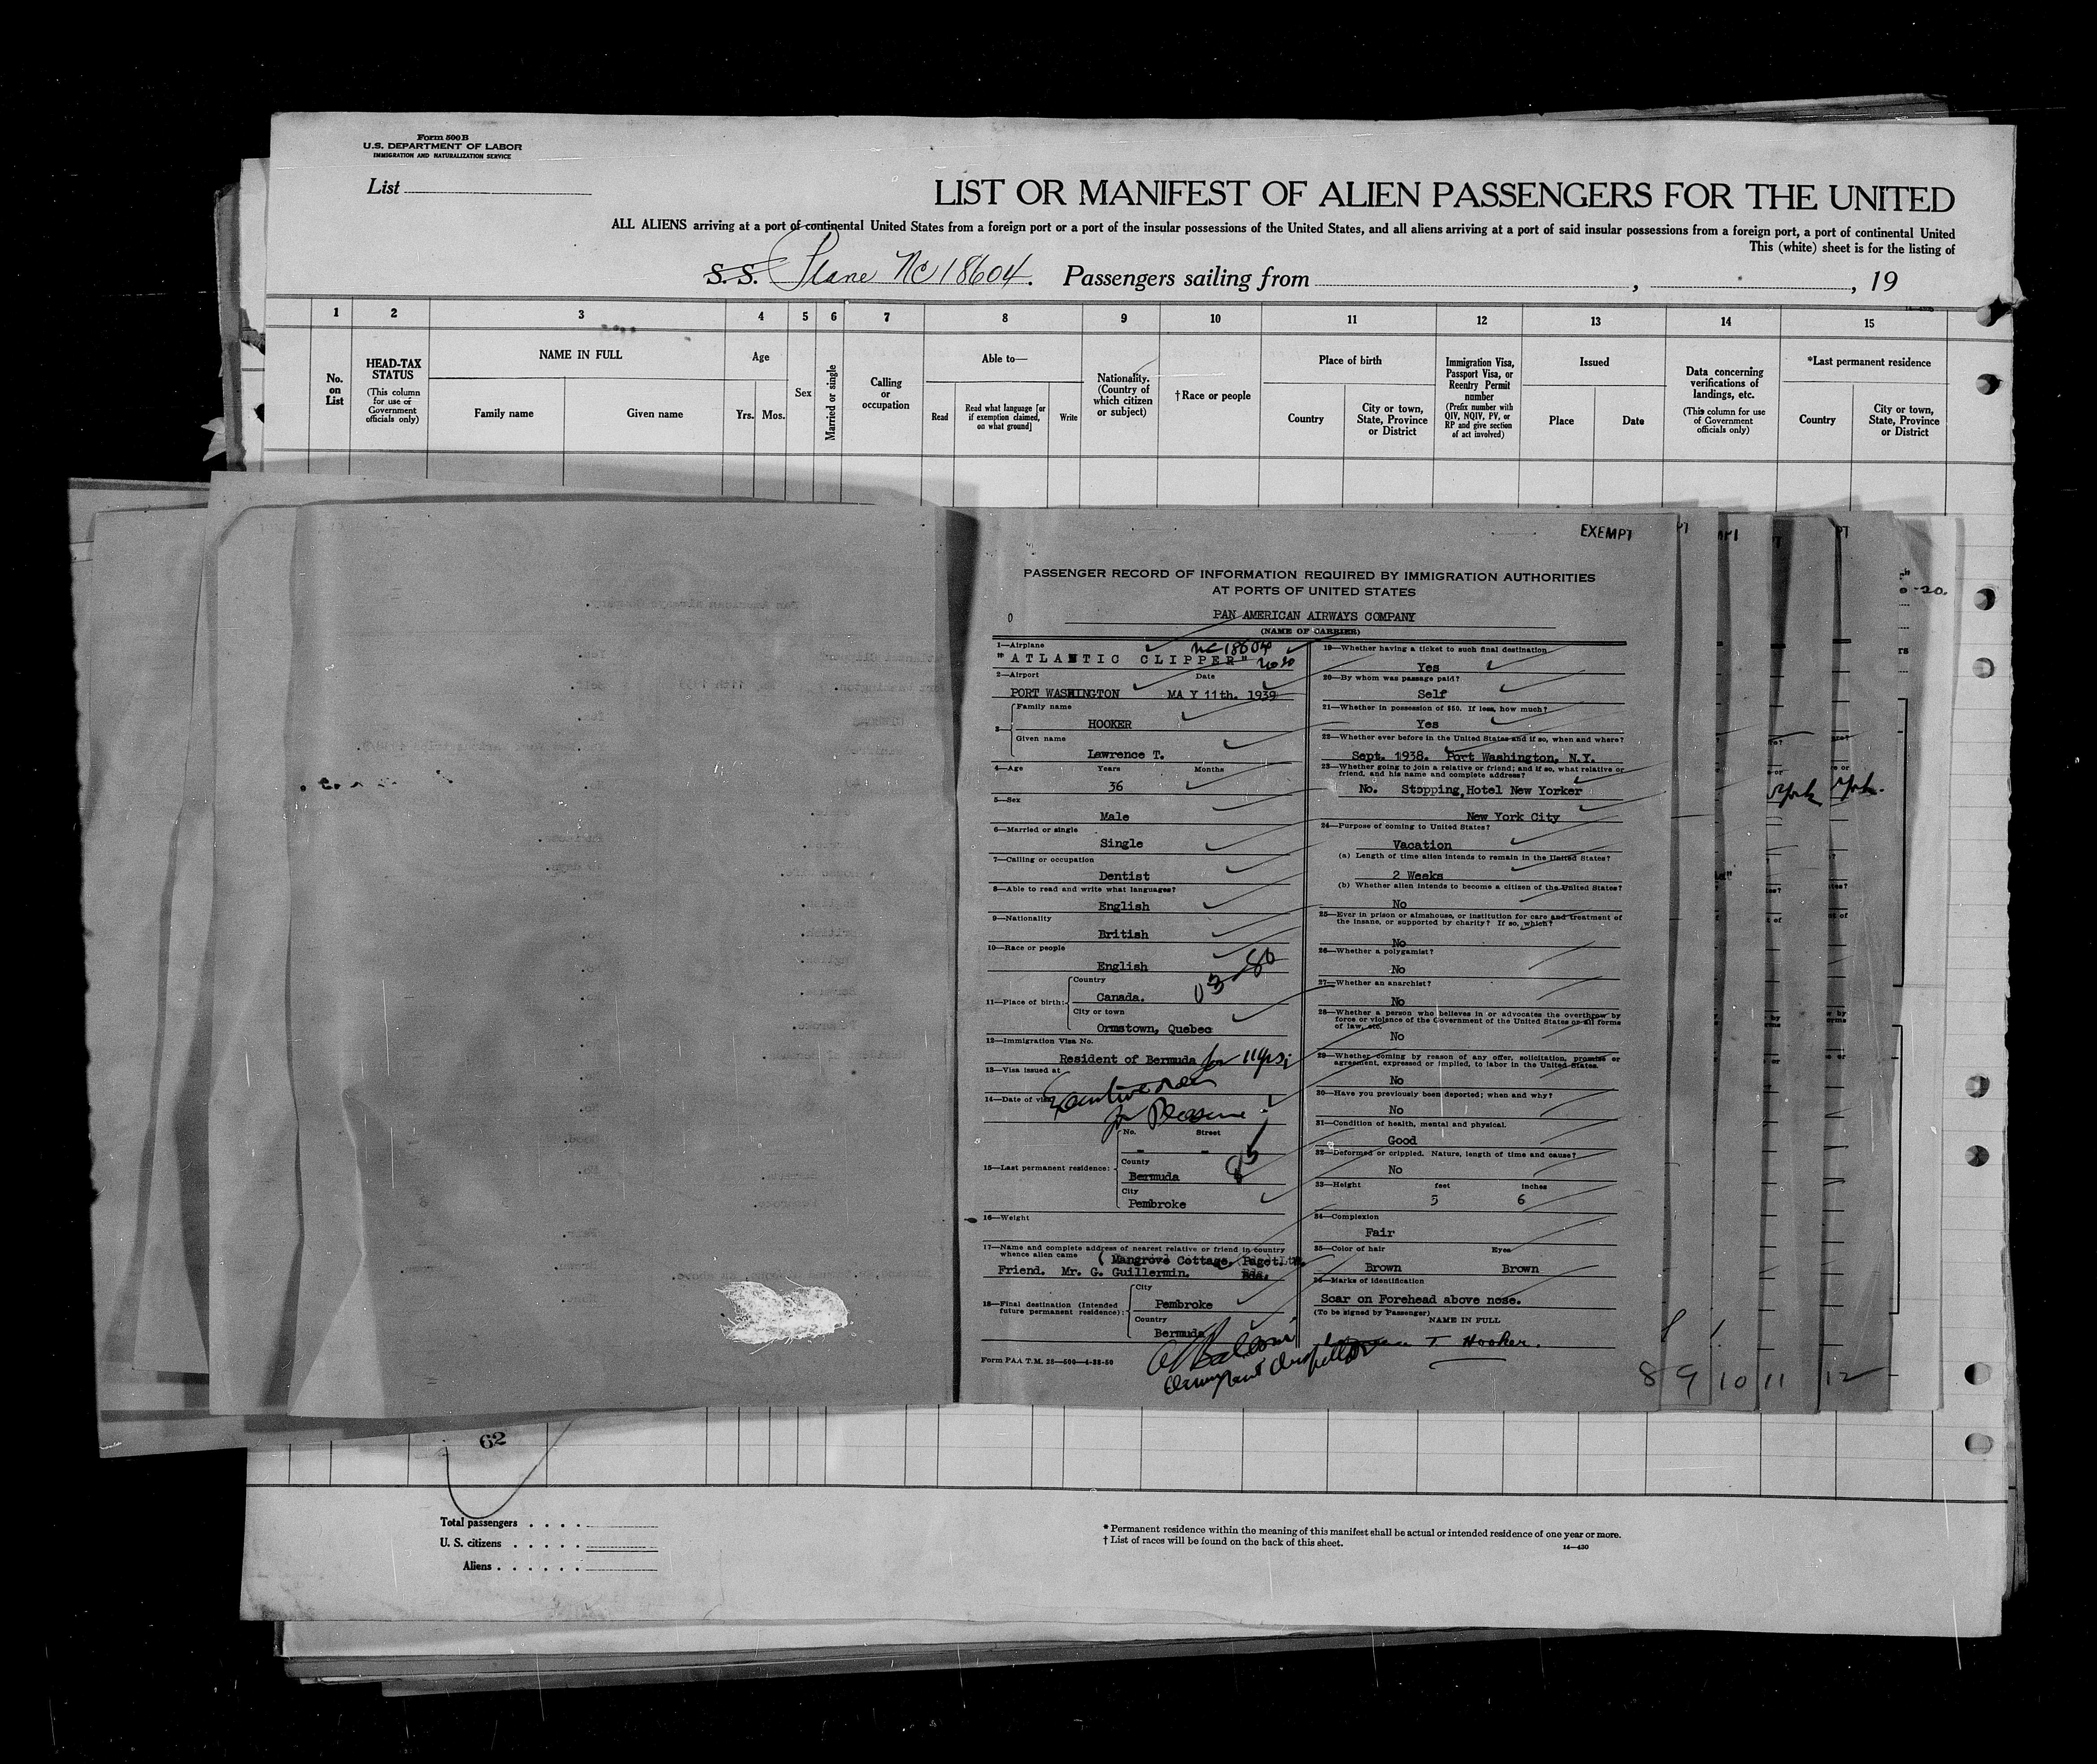 Form 500B
U.S. DEPARTMENT OF LABOR
IMMIGRATION AND NATURALIZATION SERVICE
List
LIST OR MANIFEST OF ALIEN PASSENGERS FOR THE UNITED
ALL ALIENS arriving at a port of continental United States from a foreign port or a port of the insular possessions of the United States, and all aliens arriving at a port of said insular possessions from a foreign port, a port of continental United
This (white) sheet is for the listing of
S. S. Plane NC 18604. Passengers sailing from , , 19
1 2 3 4 5 6 7 8 9 10 11 12 13 14 15
No. on List
HEAD-TAX STATUS
(This column for use of Government officials only)
NAME IN FULL
Family name
Given name
Age
Yrs. Mos.
Sex
Married or single
Calling or occupation
Able to—
Read
Read what language [or if exemption claimed, on what ground]
Write
Nationality. (Country of which citizen or subject)
† Race or people
Place of birth
Country
City or town, State, Province or District
Immigration Visa, Passport Visa, or Reentry Permit number
(Prefix number with QIV, NQIV, PV, or RP and give section of act involved)
Issued
Place
Date
Data concerning verifications of landings, etc.
(This column for use of Government officials only)
*Last permanent residence
Country
City or town, State, Province or District
EXEMPT
PASSENGER RECORD OF INFORMATION REQUIRED BY IMMIGRATION AUTHORITIES
AT PORTS OF UNITED STATES
PAN AMERICAN AIRWAYS COMPANY
(NAME OF CARRIER)
1—Airplane NC18604
"ATLANTIC CLIPPER"
2—Airport Date
PORT WASHINGTON MAY 11th. 1939
3—
Family name
HOOKER
Given name
Lawrence T.
4—Age Years Months
36
5—Sex
Male
6—Married or single
Single
7—Calling or occupation
Dentist
8—Able to read and write what languages?
English
9—Nationality
British
10—Race or people
English
03 86
11—Place of birth:
Country
Canada.
City or town
Ormstown, Quebec
12—Immigration Visa No.
Resident of Bermuda for 11 yrs
13—Visa issued at
Executive order
14—Date of visa
for Pleasure
No. Street
- -
15—Last permanent residence:
County
Bermuda
85
City
Pembroke
16—Weight
17—Name and complete address of nearest relative or friend in country
whence alien came
(Mangrove Cottage, Paget.
Friend. Mr. G. Guillermin. Bda.
18—Final destination (Intended
future permanent residence):
City
Pembroke
Country
Bermuda
Form PAA T.M. 25—500—4-38-50
19—Whether having a ticket to such final destination
Yes
20—By whom was passage paid?
Self
21—Whether in possession of $50. If less, how much?
Yes
22—Whether ever before in the United States and if so, when and where?
Sept. 1938. Port Washington, N.Y.
23—Whether going to join a relative or friend; and if so, what relative or
friend, and his name and complete address?
No. Stopping Hotel New Yorker
New York City
24—Purpose of coming to United States?
Vacation
(a) Length of time alien intends to remain in the United States?
2 Weeks
(b) Whether alien intends to become a citizen of the United States?
No
25—Ever in prison or almshouse, or institution for care and treatment of
the insane, or supported by charity? If so, which?
No
26—Whether a polygamist?
No
27—Whether an anarchist?
No
28—Whether a person who believes in or advocates the overthrow by
force or violence of the Government of the United States or all forms
of law, etc.
No
29—Whether coming by reason of any offer, solicitation, promise or
agreement, expressed or implied, to labor in the United States.
No
30—Have you previously been deported; when and why?
No
31—Condition of health, mental and physical.
Good
32—Deformed or crippled. Nature, length of time and cause?
No
33—Height feet inches
5 6
34—Complexion
Fair
35—Color of hair Eyes
Brown Brown
36—Marks of identification
Scar on Forehead above nose.
(To be signed by Passenger)
NAME IN FULL
T. Hooker.
8 9 10 11 12
62
Total passengers
U. S. citizens
Aliens
* Permanent residence within the meaning of this manifest shall be actual or intended residence of one year or more.
† List of races will be found on the back of this sheet.
14—430